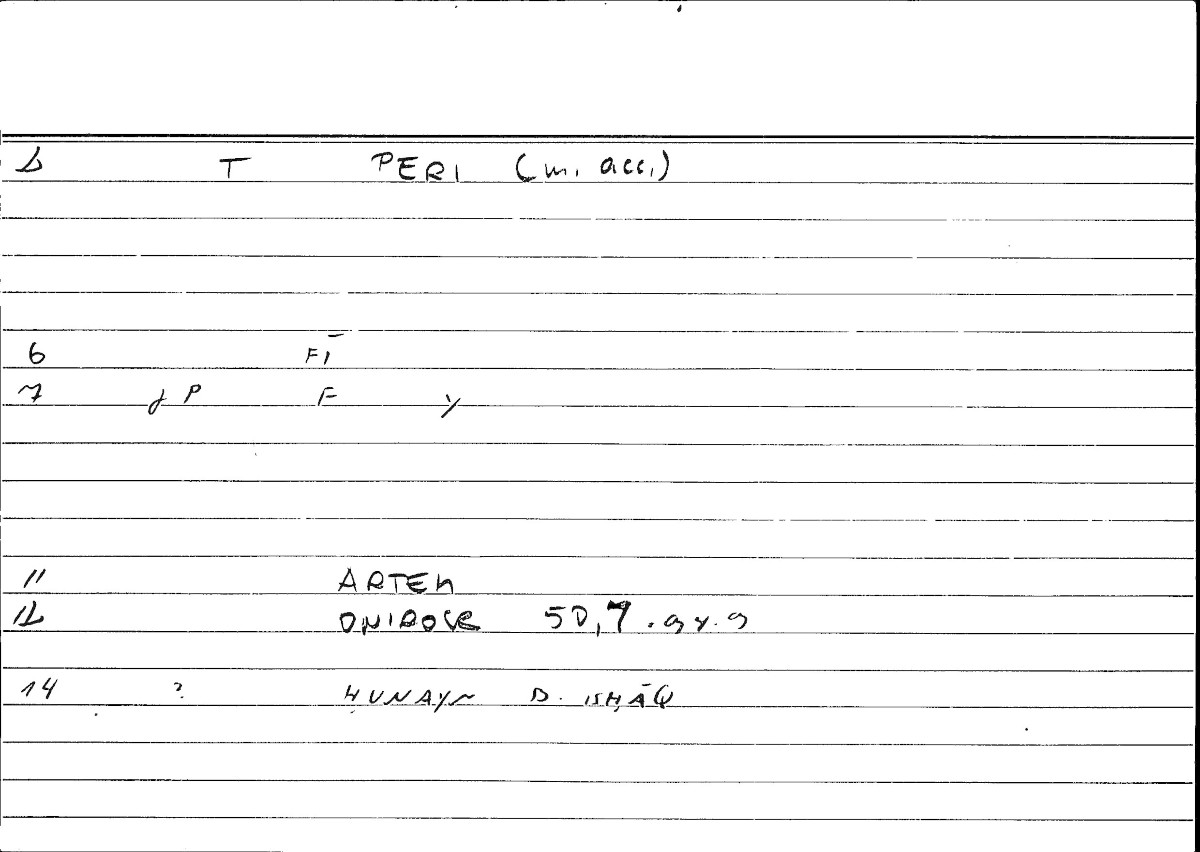 T PERI (m. acc.)
6 FĪ
7 P F y
11 ARTEM
12 ONIROCR 50,7
14 ? ḤUNAYN B. ISḤĀQ